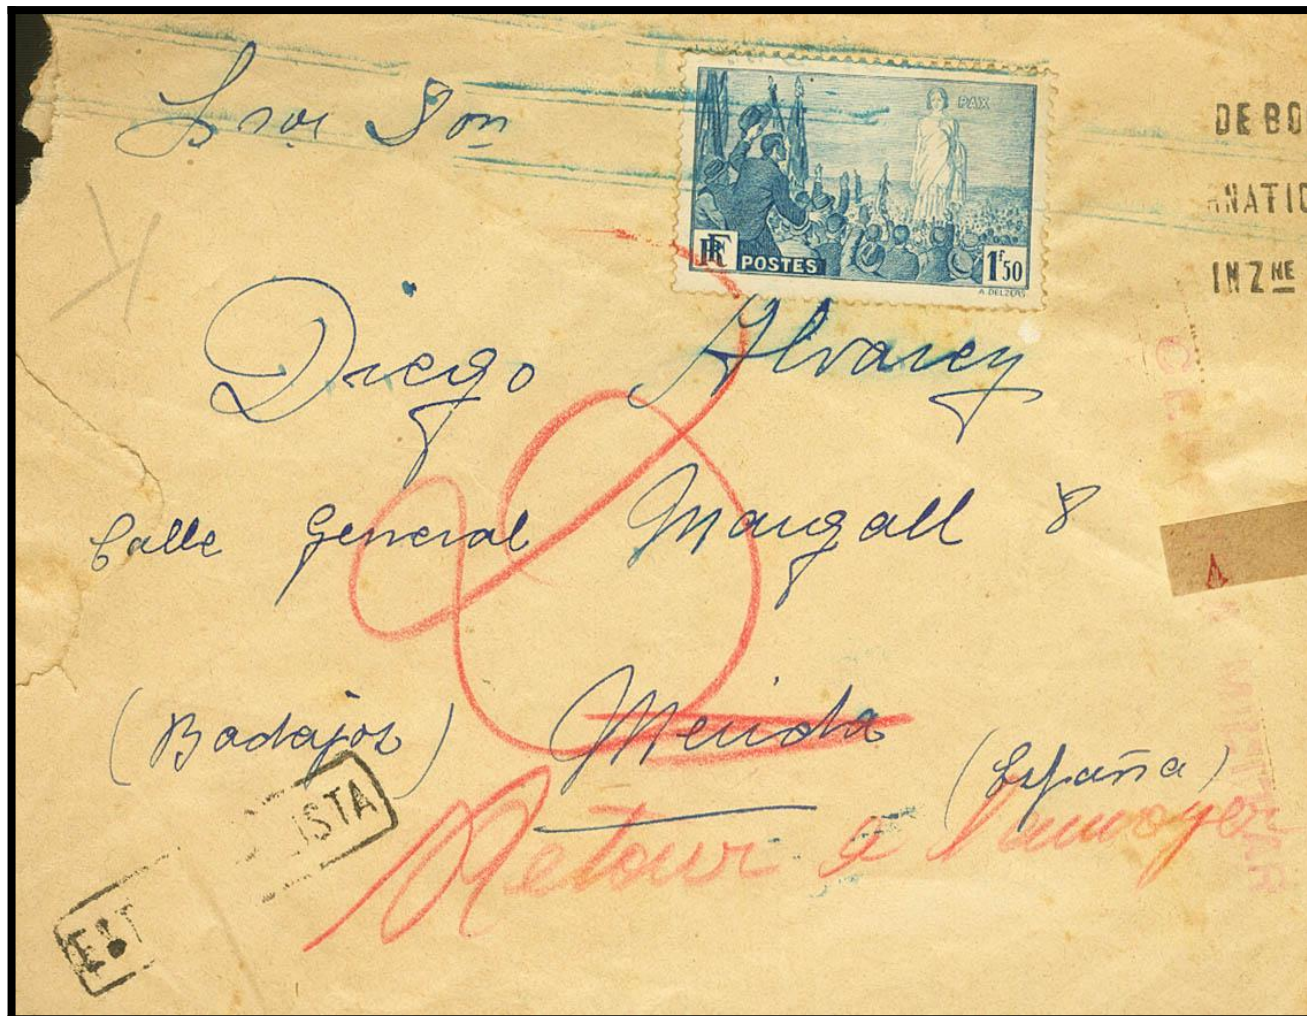 Sror Don
PAX
RF POSTES 1F50
A. DELZERS
DE BO
NATIO
IN ZNE
Diego Alvarez
Calle General Margall 8
(Badajoz) Merida (España)
ISTA
Retour a l'anvoyer